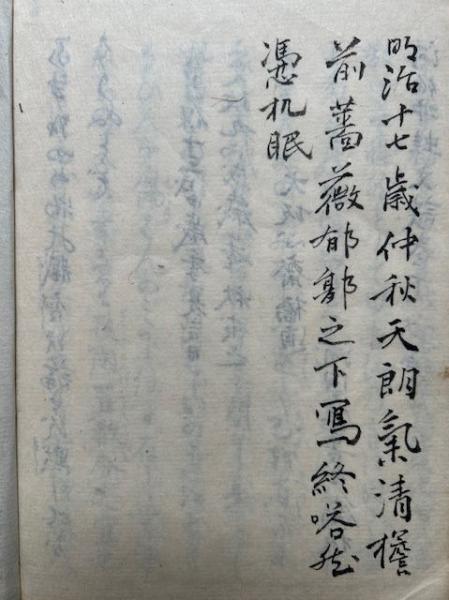 明治十七歳仲秋天朗氣清檐
前薔薇郁郁之下写終嗒然
憑机眠